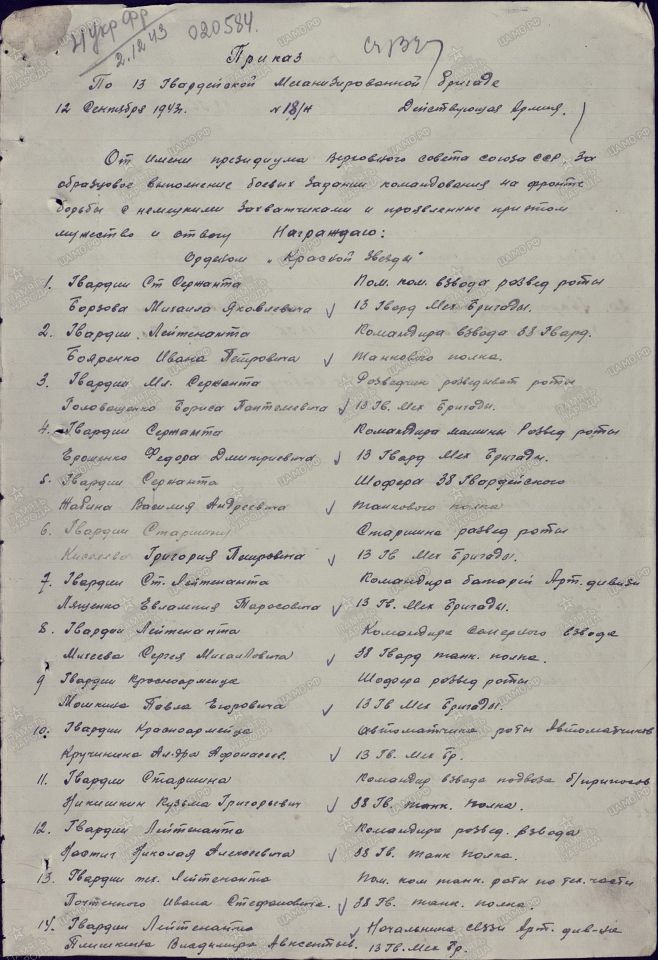 4 укр фр
2.12.43
020584.
Приказ
По 13 Гвардейской Механизированной бригаде
12 Сентября 1943г. №18/н Действующая Армия.
От имени президиума Верховного совета союза ССР, за
образцовое выполнение боевых задании командования на фронте
борьбы с немецкими захватчиками и проявленные при этом
мужество и отвагу Награждаю:
Орденом „Красной Звезды"
1. Гвардии Ст Сержанта Пом. ком. взвода развед роты
Борзова Михаила Яковлевича 13 Гвард Мех Бригады.
2. Гвардии Лейтенанта Командира взвода 38 Гвард.
Бояренко Ивана Петровича танкового полка.
3. Гвардии Мл. Сержанта Розведчик розведыват роты
Головащенко Бориса Пантелеевича 13 Гв. Мех Бригады.
4. Гвардии Сержанта Командира машины Розвед роты
Ерошенко Федора Дмитриевича 13 Гвард Мех Бригады.
5. Гвардии Сержанта Шофера 38 Гвардейского
Жабина Василия Андреевича танкового полка
6. Гвардии Старшину Старшина развед роты
Григория Петровича 13 Гв Мех Бригады.
7. Гвардии Ст. Лейтенанта Командира батареи Арт. дивизи
Лященко Евлампия Тарасовича 13 Гв. Мех Бригады.
8. Гвардии Лейтенанта Командира Саперного взвода
Михеева Сергея Михайловича 38 Гвард танк. полка.
9 Гвардии Красноармейца Шофера розвед роты
Мошкина Павла Егоровича 13 Гв Мех Бригады.
10. Гвардии Красноармейца автоматчика роты Автоматчиков
Кручинина Ал-дра Афонасьев. 13 Гв. Мех Бр.
11. Гвардии Старшина Командир взвода подвоза б/припасов
Никишкин Кузьма Григорьевич 38 Гв. танк. полка.
12. Гвардии Лейтенанта Командира розвед. взвода
Николая Алексеевича 38 Гв. танк полка.
13. Гвардии тех. Лейтенанта Пом. ком танк. роты по тех. части
Почтенного Ивана Стефановича. 38 Гв. танк. полка.
14. Гвардии Лейтенанта Начальника связи Арт. див-на
Плишкина Владимира Авксентьев. 13 Гв. Мех Бр.